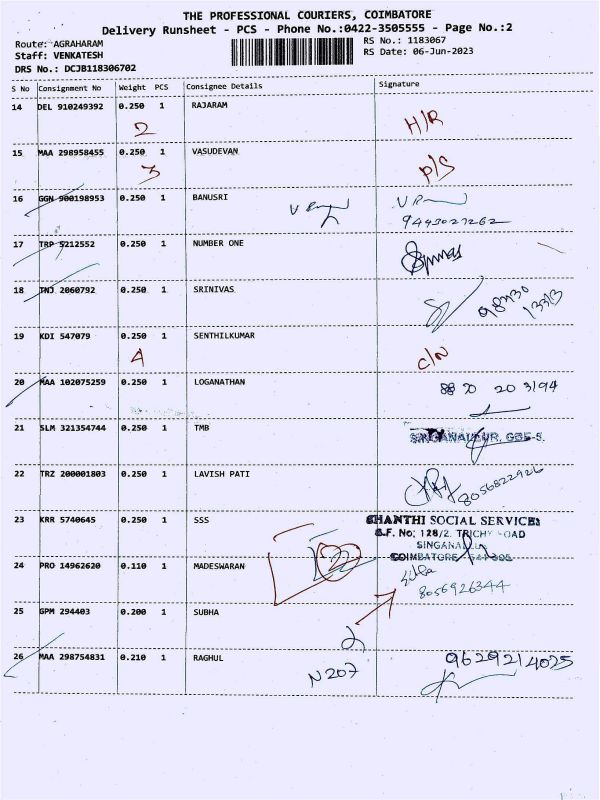 THE PROFESSIONAL COURIERS, COIMBATORE
Delivery Runsheet - PCS - Phone No.:0422-3505555 - Page No.:2
Route: AGRAHARAM RS No.: 1183067
Staff: VENKATESH RS Date: 06-Jun-2023
DRS No.: DCJB118306702
S No Consignment No Weight PCS Consignee Details Signature
14 DEL 910249392 0.250 1 RAJARAM
2 H/R
15 MAA 298958455 0.250 1 VASUDEVAN
3 P/S
16 GGN 900198953 0.250 1 BANUSRI
9443027262
17 TRP 5212552 0.250 1 NUMBER ONE
18 TNJ 2060792 0.250 1 SRINIVAS
19 KDI 547079 0.250 1 SENTHILKUMAR
4 C/N
20 MAA 102075259 0.250 1 LOGANATHAN
21 SLM 321354744 0.250 1 TMB
SINGANALLUR, CBE-5.
22 TRZ 200001803 0.250 1 LAVISH PATI
8056822926
23 KRR 5740645 0.250 1 SSS
SHANTHI SOCIAL SERVICES
S.F. No; 128/2. TRICHY ROAD
SINGANALLUR
COIMBATORE
24 PRO 14962620 0.110 1 MADESWARAN
8056926344
25 GPM 294403 0.200 1 SUBHA
26 MAA 298754831 0.210 1 RAGHUL
N207
9629214025